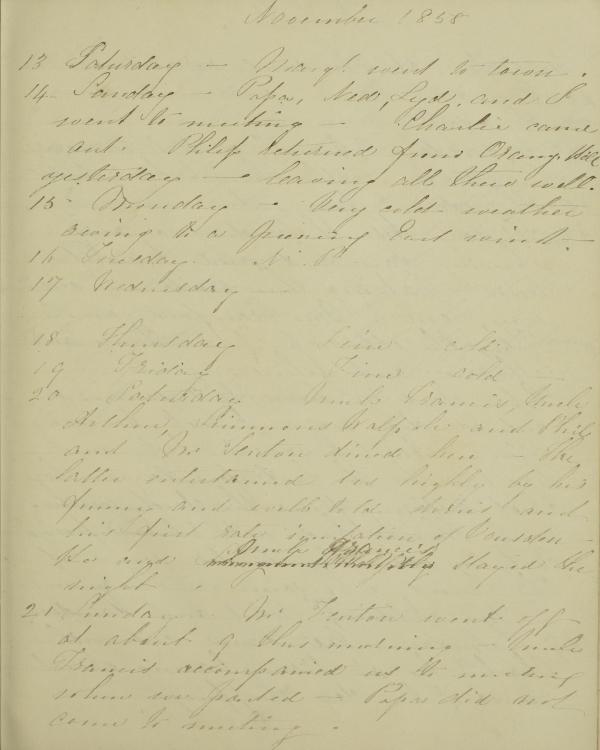 November 1858
13 Saturday — Margt. went to town.
14 Sunday — Papa, Ned, Lyd. and I
went to meeting — Charlie came
out. Philip returned from Orange Hill
yesterday — leaving all there well.
15 Monday — Very cold weather
owing to a piercing East wind. —
16 Tuesday.
17 Wednesday
18 Thursday Fine cold
19 Friday Fine cold
20 Saturday Uncle Francis, Uncle
Arthur, Simmons Walpole and Phil
and Mr Fenton dined here — the
latter entertained us highly by his
funny and well told stories and
his first rate imitation of
He and Uncle Francis stayed the
night.
21 Sunday Mr Fenton went off
at about 9 this morning — Uncle
Francis accompanied us to meeting
when we parted — Papa did not
come to meeting.